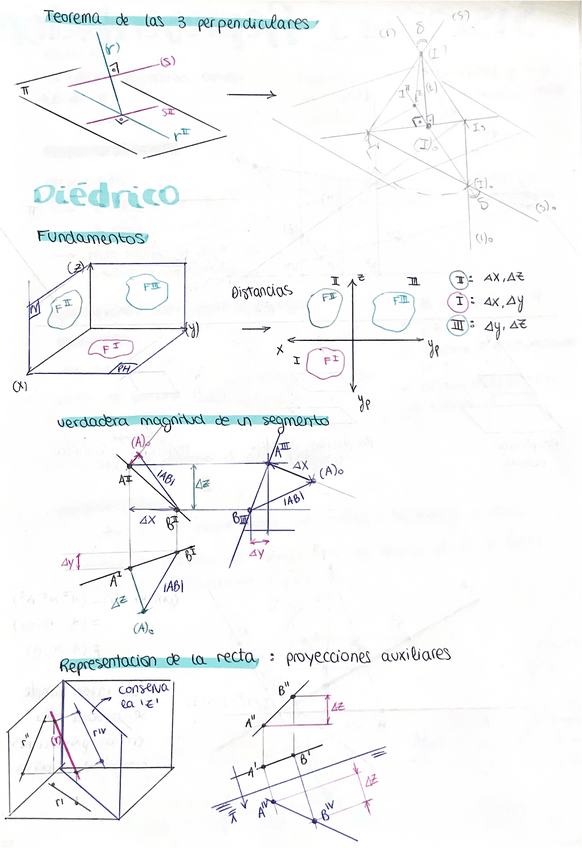 Teorema de las 3 perpendiculares
(r)
(s)
π
sᴵᴵ
rᴵᴵ
(r)
δ
(s)
(I)
Iᴵᴵ
(t)
(I)₀
Is
(I)₀
δ
(s)₀
(t)₀
Diédrico
Fundamentos
(z)
Fᴵᴵ
Fᴵᴵᴵ
(y)
Fᴵ
PH
(x)
Distancias
II
z
III
Fᴵᴵ
Fᴵᴵᴵ
x
yp
I
Fᴵ
yp
II: Δx, Δz
I: Δx, Δy
III: Δy, Δz
verdadera magnitud de un segmento
(A)₀
Aᴵᴵ
|AB|
Δz
Δx
Bᴵᴵ
Δy
Aᴵ
Bᴵ
Δz
|AB|
(A)₀
Aᴵᴵᴵ
Δx
(A)₀
|AB|
Bᴵᴵᴵ
Δy
Representacion de la recta : proyecciones auxiliares
conserva
la 'z'
r''
(r)
rᴵⱽ
rᴵ
B''
Δz
A''
B'
A'
Δz
Aᴵⱽ
Bᴵⱽ